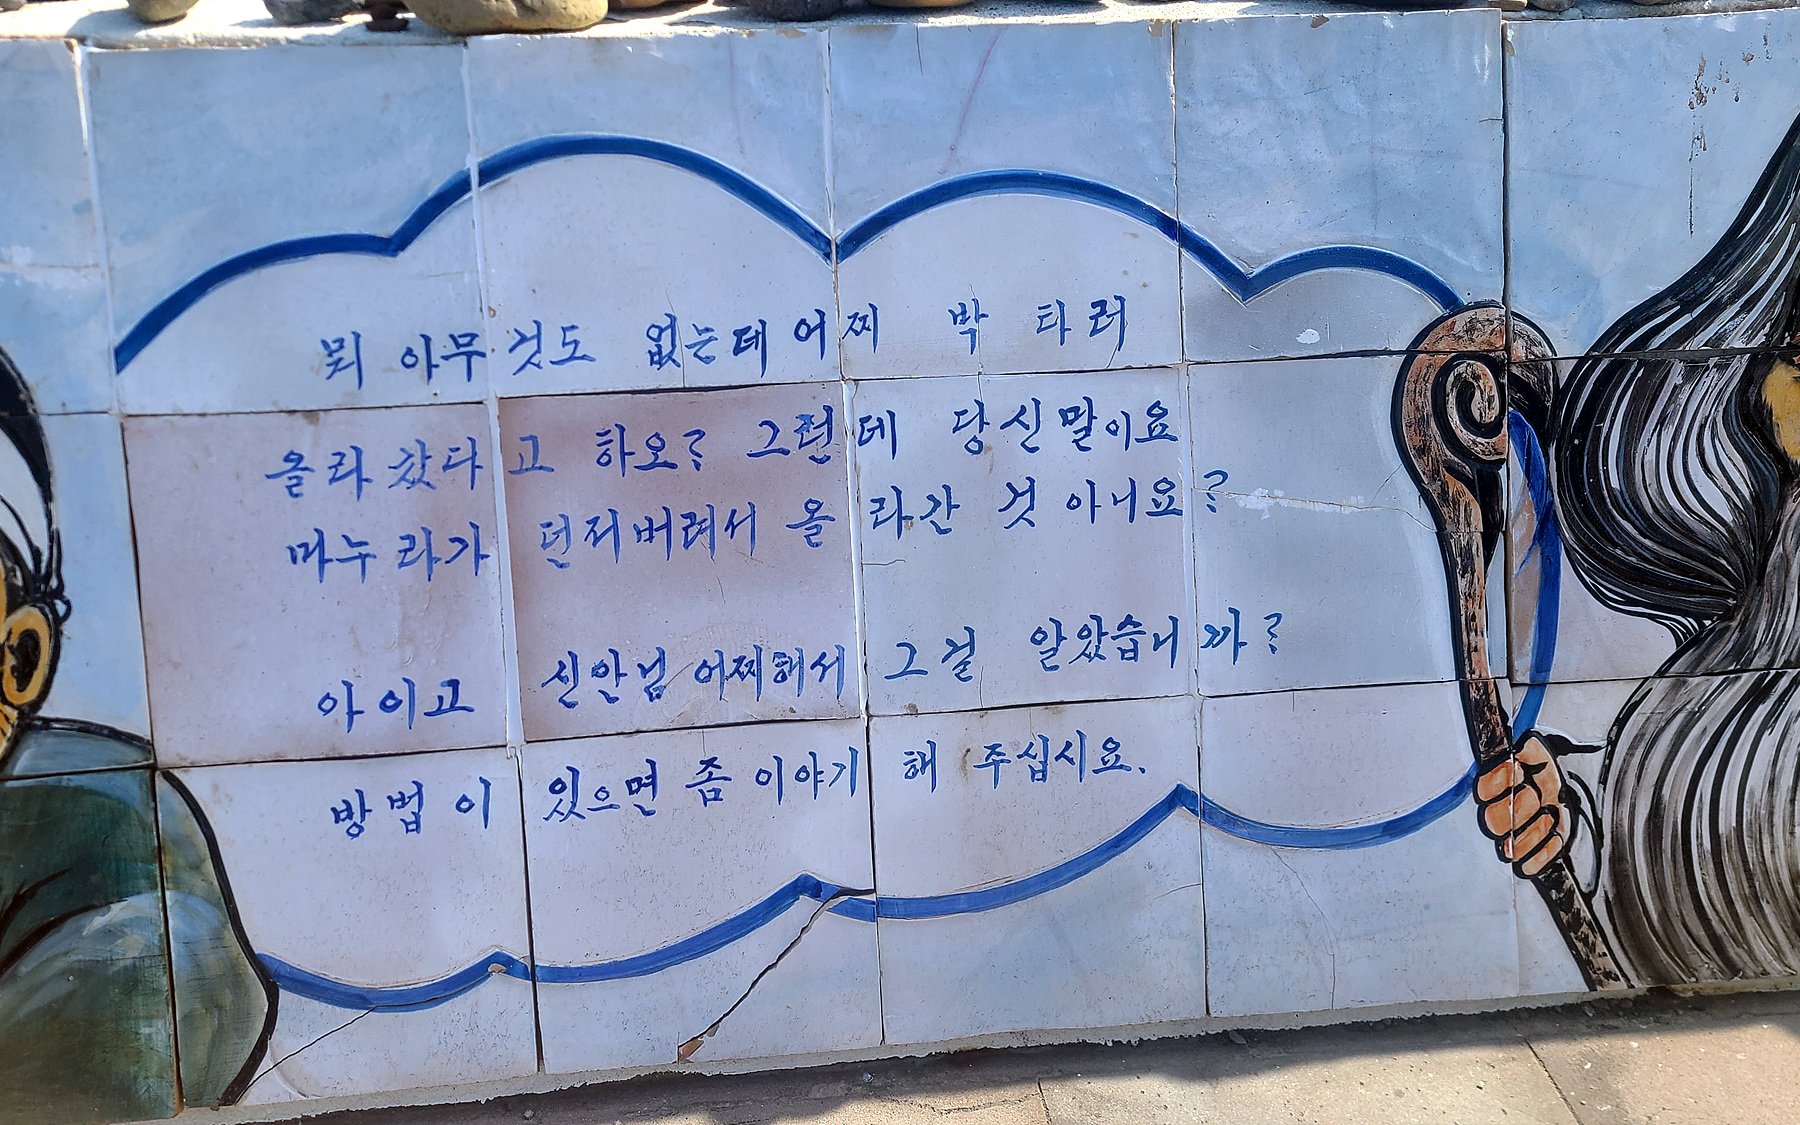 뭐 아무것도 없는데 어찌 박 타러
올라 갔다고 하오? 그런데 당신말이요
마누라가 던저버려서 올라간 것 아니요?
아이고 신안님 어찌해서 그걸 알았습니까?
방법이 있으면 좀 이야기 해 주십시요.